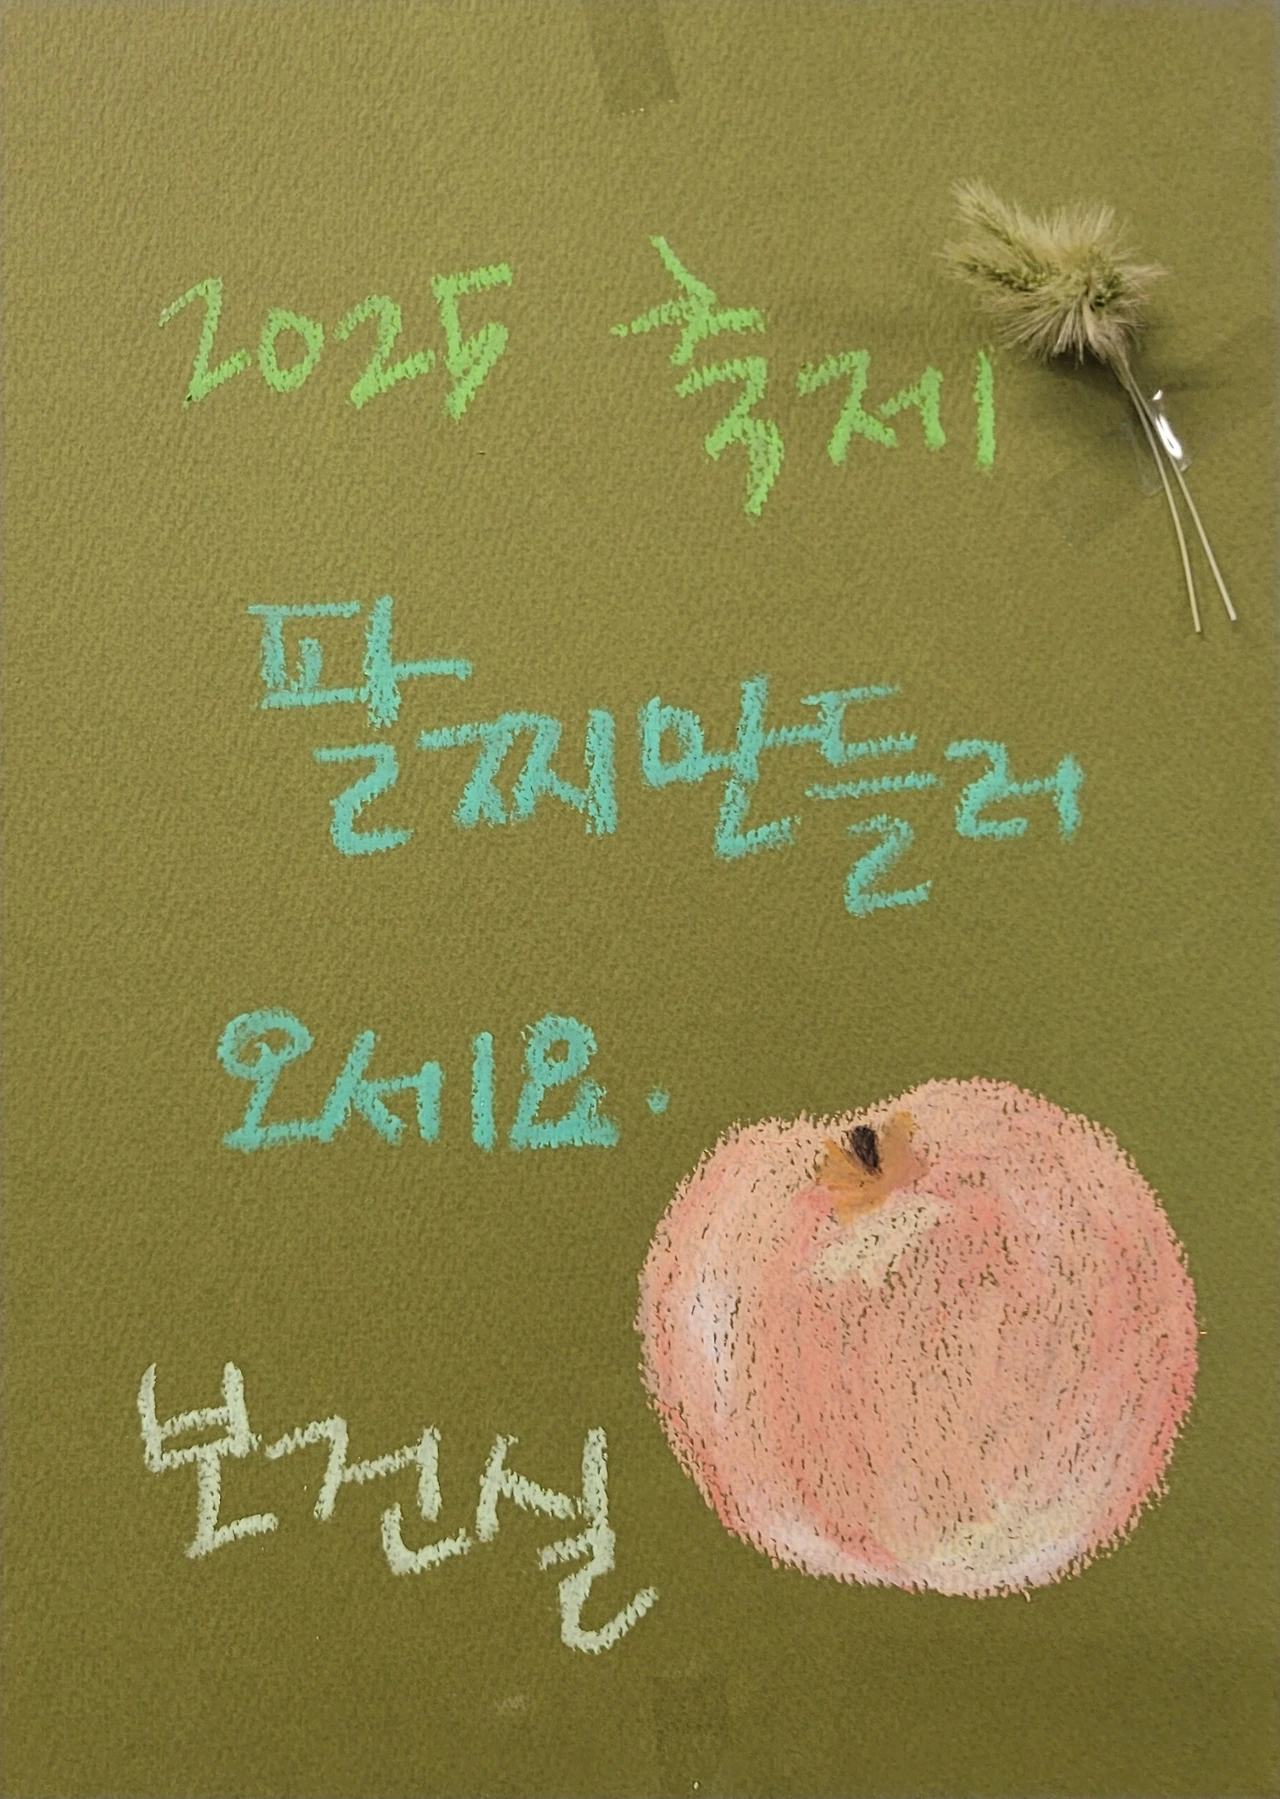 2025 축제
팔찌만들러
오세요.
보건실